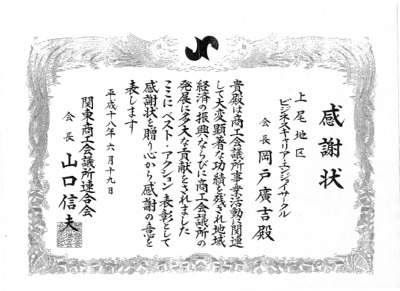 感謝状
上尾地区
ビジネスキャリア・エンジョイサークル
会長 岡戸廣吉殿
貴殿は商工会議所事業活動に関連
して大変顕著な功績を残され地域
経済の振興ならびに商工会議所の
発展に多大な貢献をされました
ここにベスト・アクション表彰として
感謝状を贈り心から感謝の意を
表します
平成十八年六月十九日
関東商工会議所連合会
会長 山口信夫